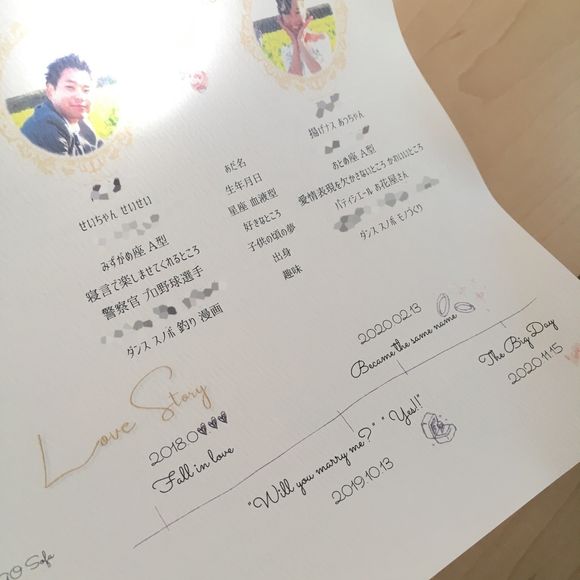 揚げナス あっちゃん
おとめ座 A型
愛情表現を欠かさないところ かわいいところ
パティシエール お花屋さん
ダンス スノボ モノづくり
あだ名
生年月日
星座 血液型
好きなところ
子供の頃の夢
出身
趣味
せいちゃん せいせい
みずがめ座 A型
寝言で楽しませてくれるところ
警察官 プロ野球選手
ダンス スノボ 釣り 漫画
Love Story
2018.0
Fall in love
"Will you marry me?" "Yes!!"
2019.10.13
2020.02.13
Became the same name
The Big Day
2020.11.15